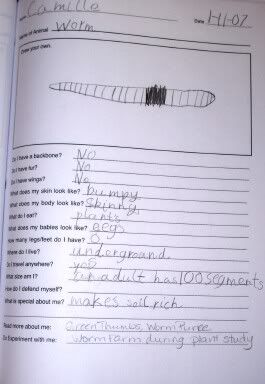 Name Camille Date 1-11-07
Name of Animal Worm
Draw your own.
Do I have a backbone? No
Do I have fur? No
Do I have wings? No
What does my skin look like? bumpy
What does my body look like? Skinny
What do I eat? plants
What does my babies look like? eegs
How many legs/feet do I have? 0
Where do I live? underground
Do I travel anywhere? yes
What size am I? an adult has 100 segments
How do I defend myself?
What is special about me? makes soil rich
Read more about me: Green Thumbs, Worm
Do Experiment with me: worm farm during plant study